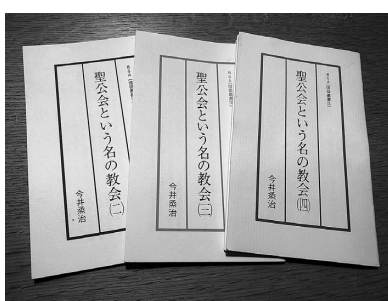 聖公会という名の教会(二)
今井烝治
聖公会という名の教会(三)
今井烝治
聖公会という名の教会(四)
今井烝治